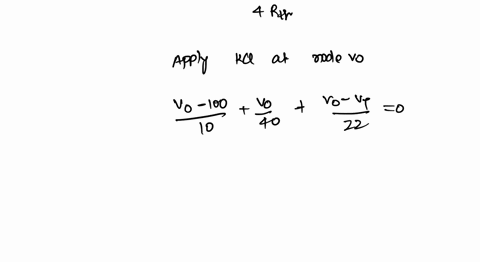 4 Rth
Apply KCL at node vo
vo-100/10 + vo/40 + vo-vp/22 =0